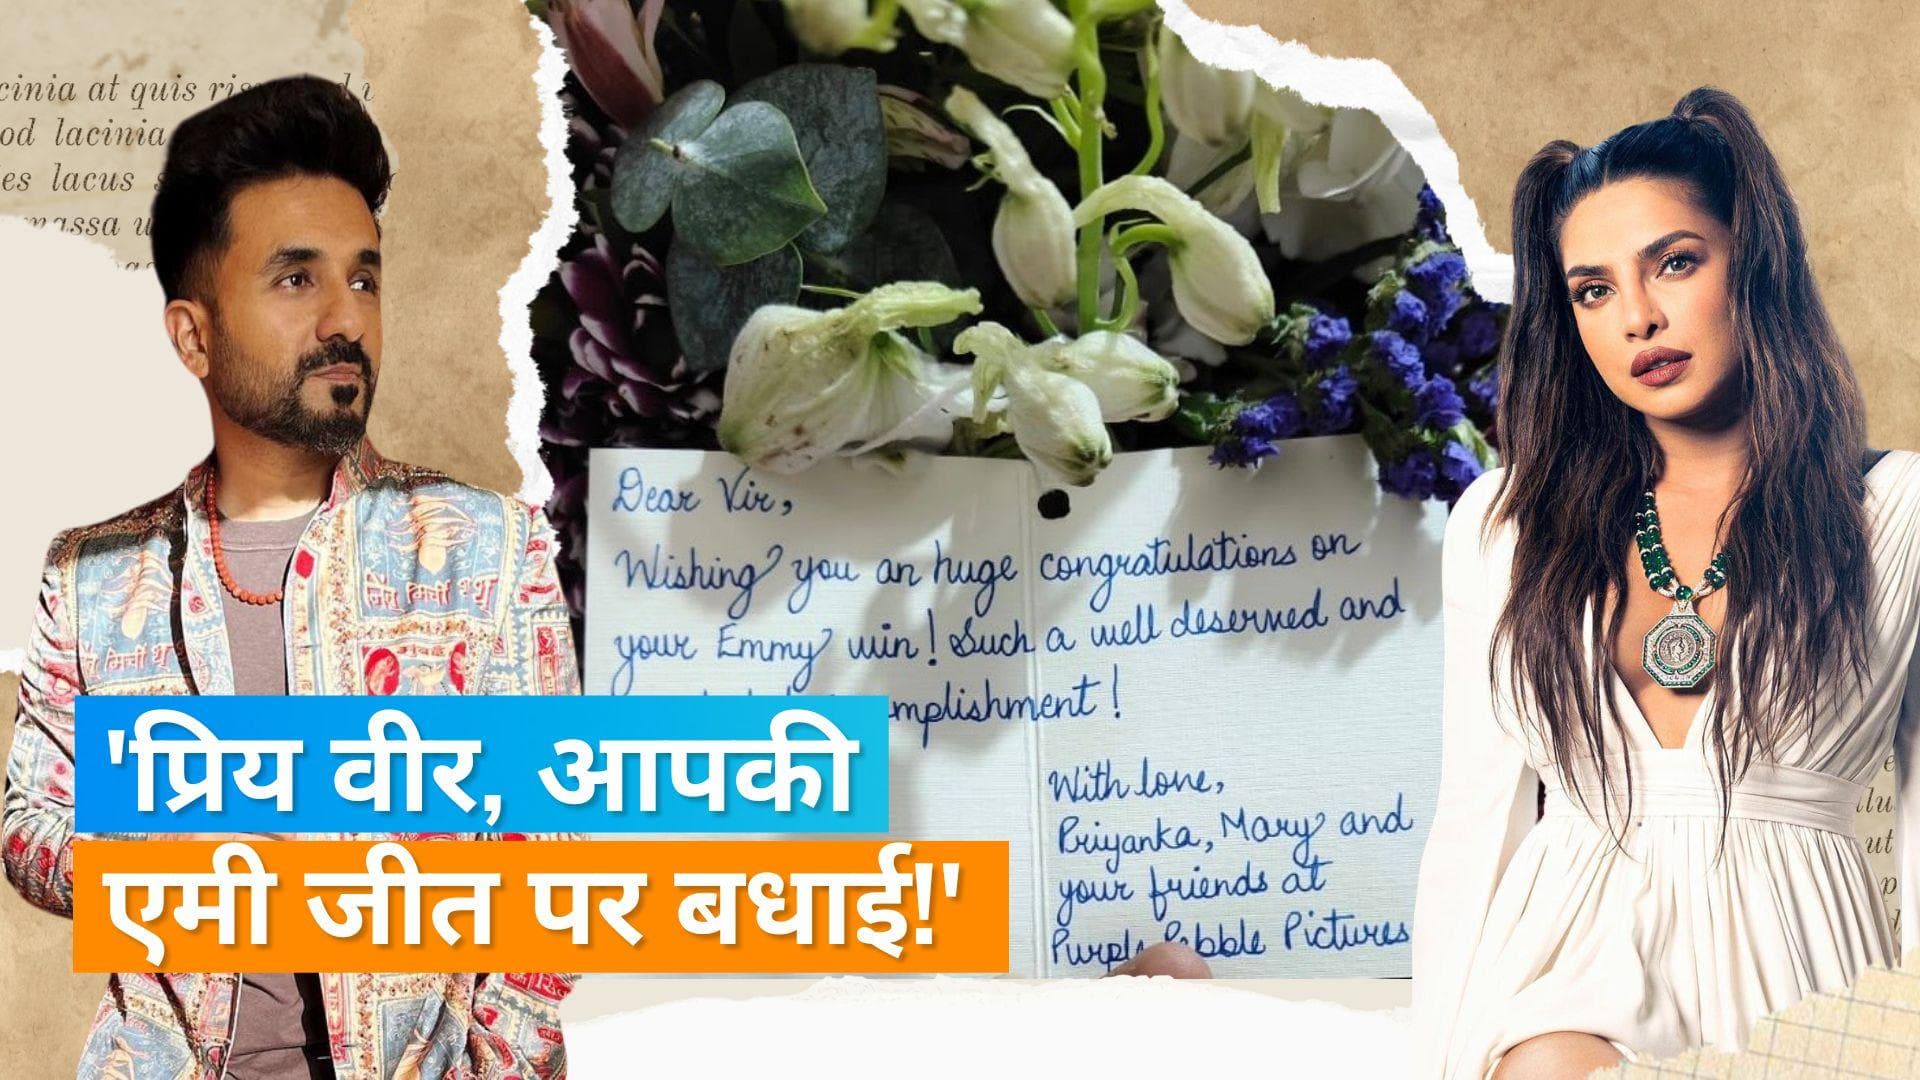 cinia at quis ris
od lacinia
es lacus
massa u
Dear Vir,
Wishing you an huge congratulations on
your Emmy win! Such a well deserved and
mplishment!
With love,
Priyanka, Mary and
your friends at
Purple Pebble Pictures
'प्रिय वीर, आपकी
एमी जीत पर बधाई!'